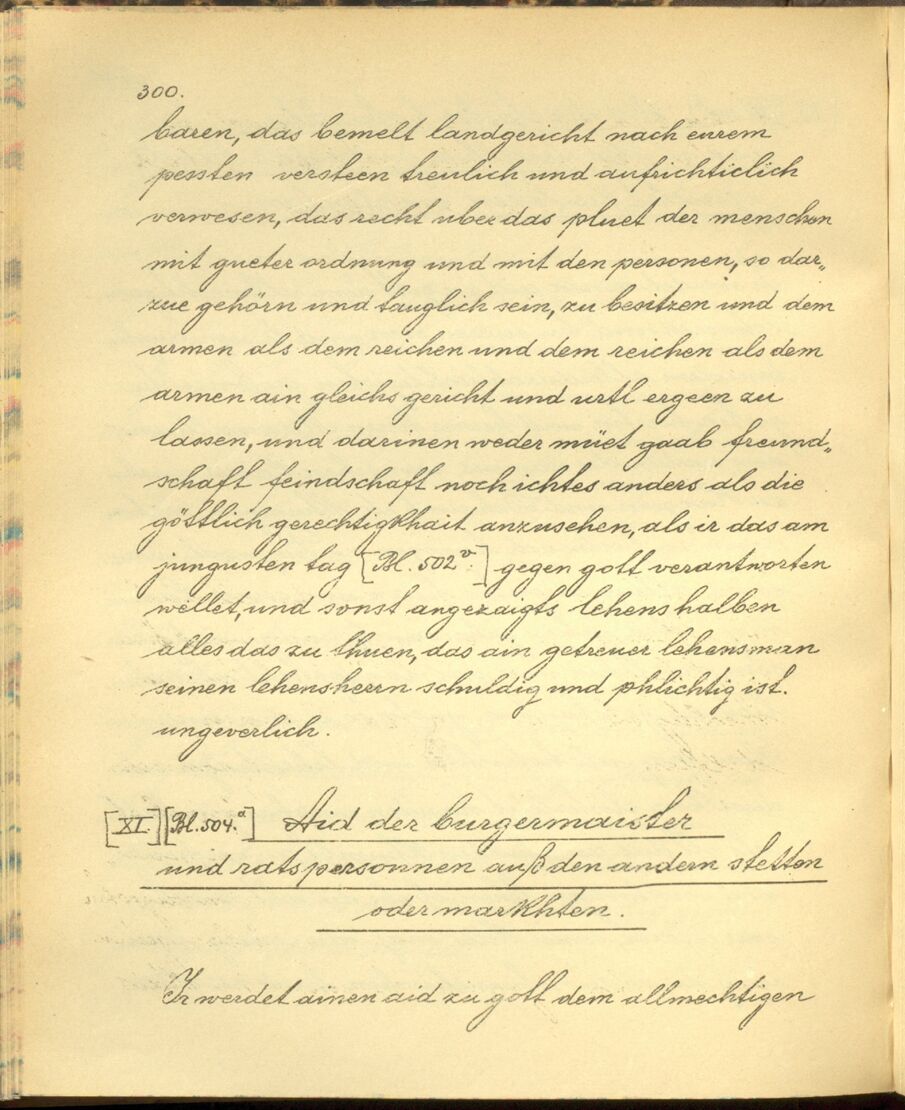 300.
baren, das bemelt landgericht nach eurem
pessten versteen treulich und aufrichticlich
verwesen, das recht uber das pluet der menschen
mit gueter ordnung und mit den personen, so dar„
zue gehörn und tauglich sein, zu besitzen und dem
armen als dem reichen und dem reichen als dem
armen ain gleichs gericht und urtl ergeen zu
lassen, und darinen weder müet gaab freund„
schaft feindschaft noch ichtes anders als die
göttlich gerechtigkhait anzusehen, als ir das am
jungusten tag [Bl. 502v.] gegen gott verantworten
wellet, und sonst angezaigts lehens halben
alles das zu thuen, das ain getreuer lehensman
seinen lehensherrn schuldig und phlichtig ist.
ungeverlich.
[XI.] [Bl. 504.a] Aid der burgermaister
und ratspersonnen auß den andern stetten
oder markhten.
Ir werdet ainen aid zu gott dem allmechtigen